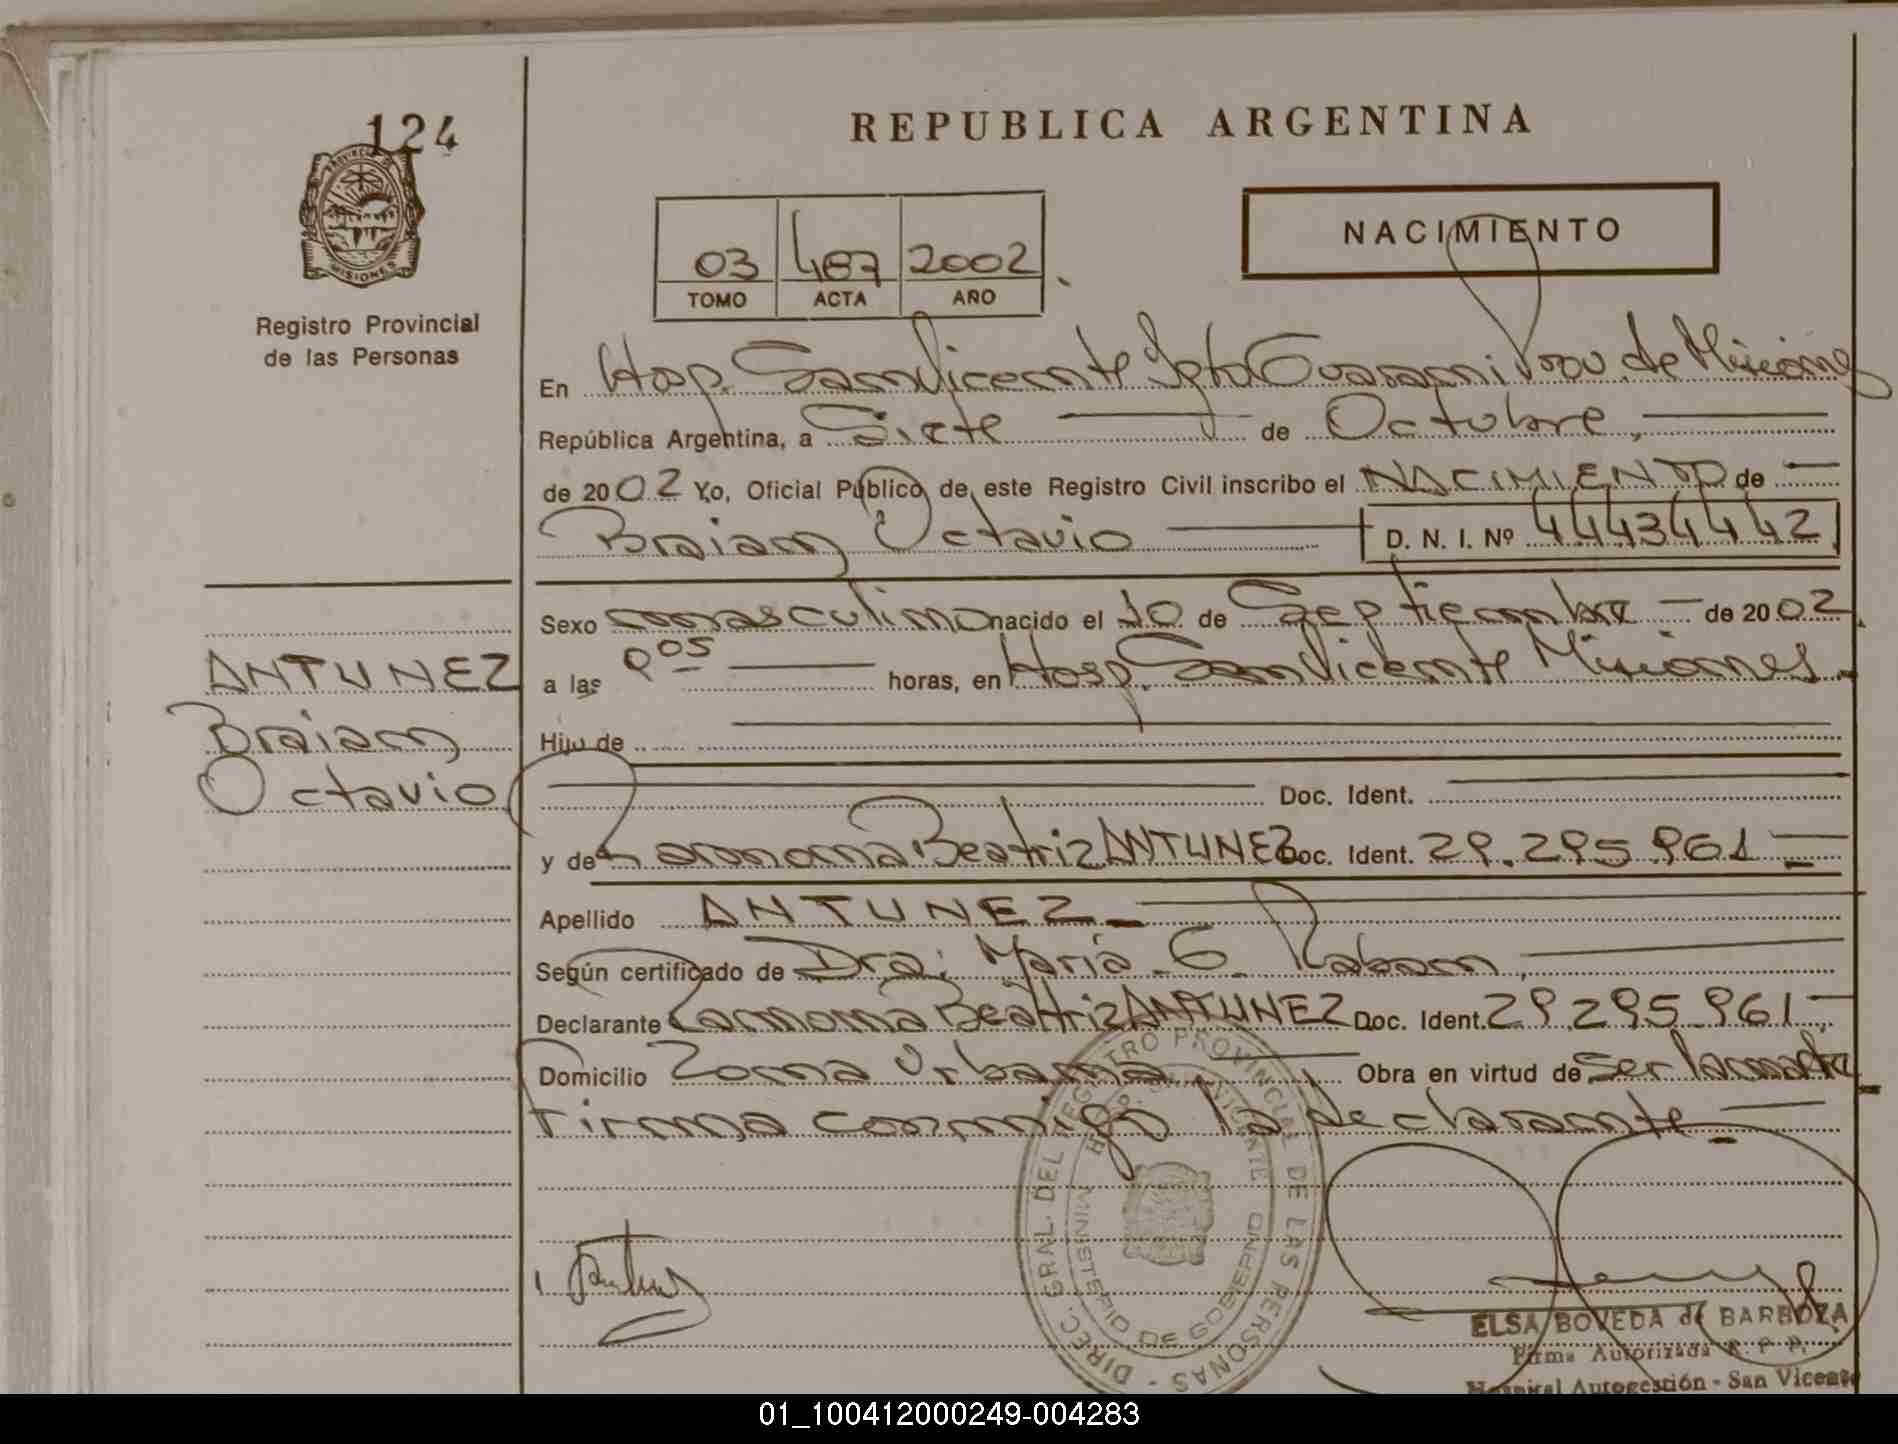 124
REPUBLICA ARGENTINA
PROVINCIA DE
MISIONES
Registro Provincial
de las Personas
03 487 2002
TOMO ACTA AÑO
NACIMIENTO
En Hosp. San Vicente Dpto Guaraní Prov. de Misiones
República Argentina, a Siete de Octubre,
de 2002 Yo, Oficial Público de este Registro Civil inscribo el NACIMIENTO de
Braian Octavio D. N. I. Nº 44434442
Sexo masculino nacido el 10 de Septiembre de 2002
a las 9 05 horas, en Hosp. San Vicente Misiones.
Hijo de
Doc. Ident.
y de Ramona Beatriz ANTUNEZ Doc. Ident. 29.295.961
Apellido ANTUNEZ
Según certificado de Dra. Maria G. Raban,
Declarante Ramona Beatriz ANTUNEZ Doc. Ident. 29.295.961
Domicilio Zona Urbana Obra en virtud de ser la madre
Firma conmigo la declarante
ANTUNEZ
Braian
Octavio
DIREC. GRAL. DEL REGISTRO PROVINCIAL DE LAS PERSONAS
MINISTERIO DE GOBIERNO
ELSA BOVEDA de BARBOZA
Firma Autorizada R. P. P.
Hospital Autogestión - San Vicente
01_100412000249-004283